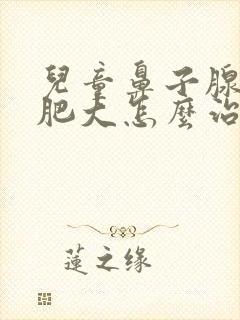 兒童鼻子腺
肥大怎麼治
蓮之缘